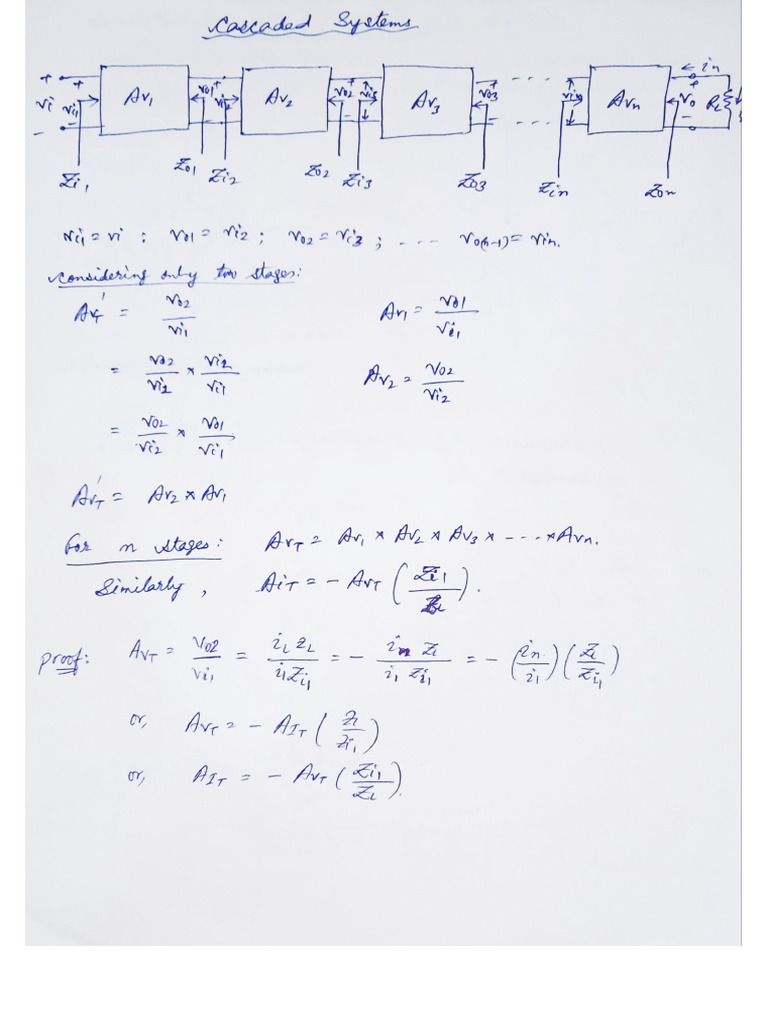 Cascaded Systems
+ + Av1 vo1 + vi2 Av2 vo2 + vi3 Av3 vo3 + - - - vin Avn ← in + vo RL
vi vi1
- - - - - - - -
Zi1 Zo1 Zi2 Zo2 Zi3 Zo3 Zin Zon
vi1 = vi ; vo1 = vi2 ; vo2 = vi3 ; - - - vo(n-1) = vin.
Considering only two stages:
AvT' = vo2/vi1 Av1 = vo1/vi1
= vo2/vi2 × vi2/vi1 Av2 = vo2/vi2
= vo2/vi2 × vo1/vi1
AvT' = Av2 × Av1
For n stages: AvT = Av1 × Av2 × Av3 × - - - × Avn.
Similarly, AiT = - AvT (Zi1/ZL).
Proof: AvT = vo2/vi1 = iL ZL/i1 Zi1 = - in ZL/i1 Zi1 = - (in/i1) (ZL/Zi1)
or, AvT = - AIT (ZL/Zi1)
or, AIT = - AvT (Zi1/ZL).